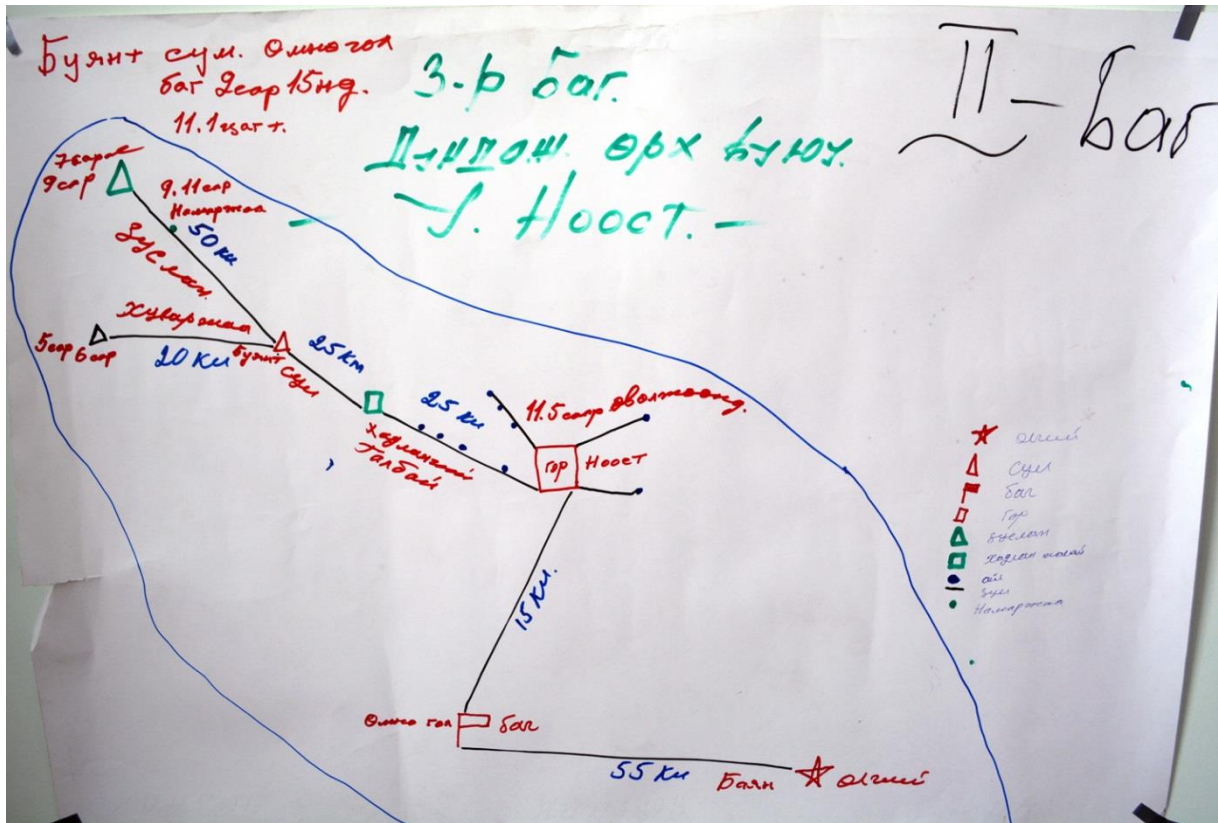 Буянт сум. Өмногол
баг 2сар 15нд.
11.1цагт.
3-р баг.
Дундаж. өрх буюу.
У. Ноост.
II - Баг
7сараас
9сар
9.11сар
Намаржаа
50 км
Зуслан.
Хуваржаа
5сар 6сар
20 км
Буянт
сум
25 км
25 км
Хадлангий
Талбай
11.5сар Өволжоонд.
гэр
Ноост
15 км.
Өмно гол
баг
55 км
Баян
Өлгий
Өлгий
Сум
баг
Гэр
Зуслан
айл
Зум
Намаржаа